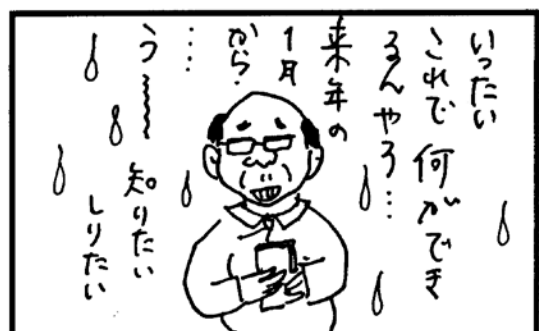 いったい
これで何ができ
るんやろ…
来年の
1月
から
……
う〜〜
知りたい
しりたい